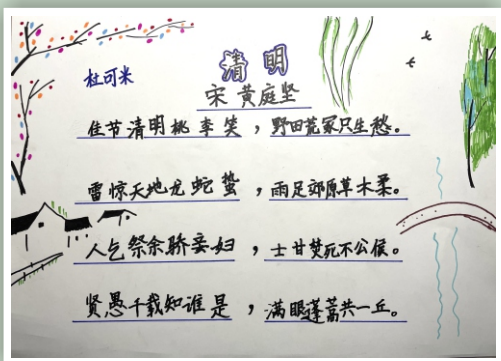 清明
杜可米
宋 黄庭坚
佳节清明桃李笑，野田荒冢只生愁。
雷惊天地龙蛇蛰，雨足郊原草木柔。
人乞祭余骄妾妇，士甘焚死不公侯。
贤愚千载知谁是，满眼蓬蒿共一丘。